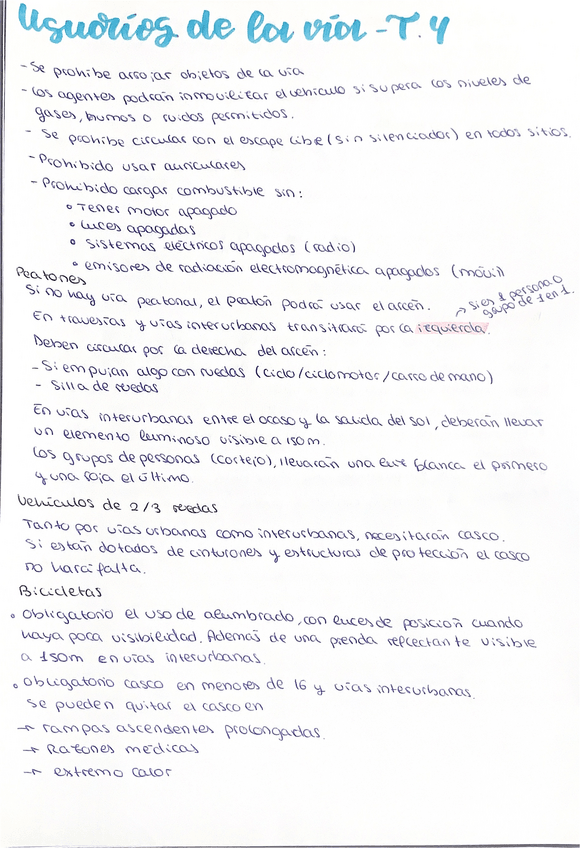 Usuarios de la vía - T. 4
- Se prohibe arrojar objetos de la vía
- Los agentes podrán inmovilizar el vehículo si supera los niveles de
gases, humos o ruidos permitidos.
- Se prohibe circular con el escape libre (sin silenciador) en todos sitios.
- Prohibido usar auriculares
- Prohibido cargar combustible sin:
• Tener motor apagado
• Luces apagadas
• Sistemas eléctricos apagados (radio)
• emisores de radiación electromagnética apagados (móvil)
Peatones
Si no hay vía peatonal, el peatón podrá usar el arcén.
→ si es 1 persona o
grupo de 1 en 1.
En travesías y vías interurbanas transitará por la izquierda.
Deben circular por la derecha del arcén:
- Si empujan algo con ruedas (ciclo/ciclomotor/carro de mano)
- Silla de ruedas
En vías interurbanas entre el ocaso y la salida del sol, deberán llevar
un elemento luminoso visible a 150m.
Los grupos de personas (cortejo), llevarán una luz blanca el primero
y una roja el último.
Vehículos de 2/3 ruedas
Tanto por vías urbanas como interurbanas, necesitarán casco.
Si están dotados de cinturones y estructuras de protección el casco
no hará falta.
Bicicletas
• Obligatorio el uso de alumbrado, con luces de posición cuando
haya poca visibilidad. Además de una prenda reflectante visible
a 150m en vías interurbanas.
• Obligatorio casco en menores de 16 y vías interurbanas.
Se pueden quitar el casco en
→ rampas ascendentes prolongadas.
→ Razones médicas
→ extremo calor